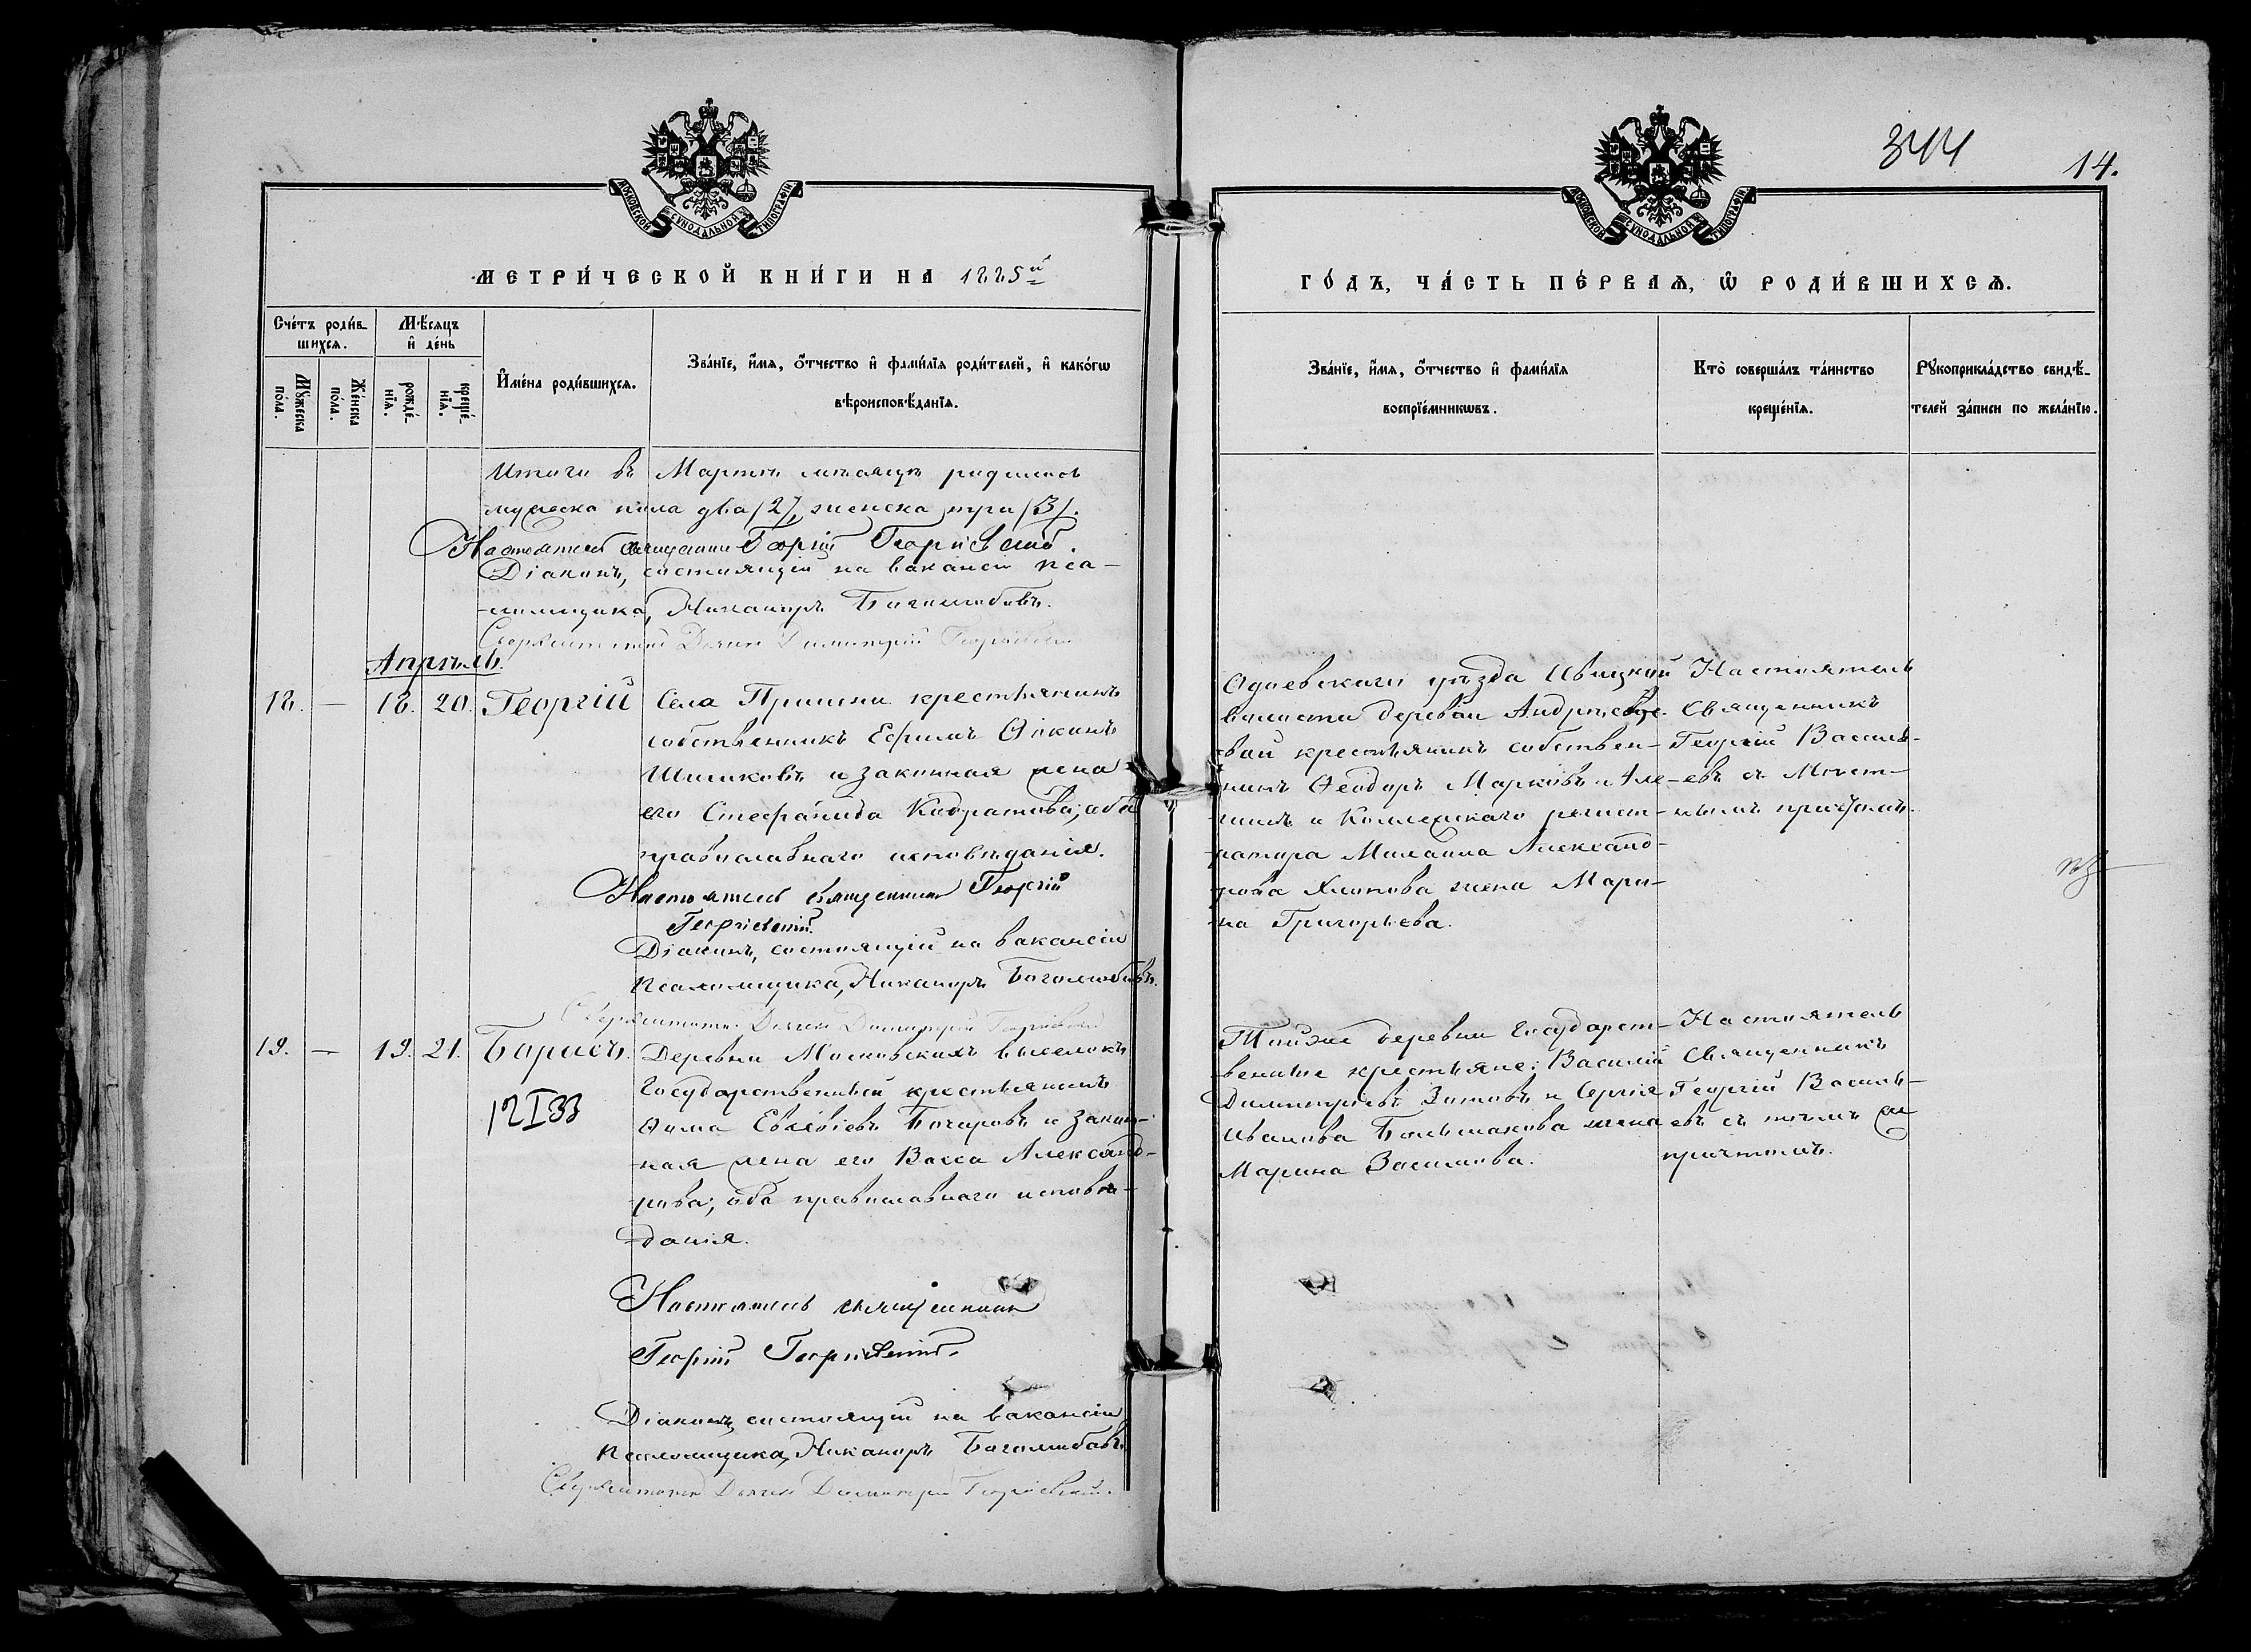 МОСКОВСКОЙ СѴНОДАЛЬНОЙ ТИПОГРАФІИ
МЕТРИ́ЧЕСКОЙ КНИ́ГИ НА 1885й
Сче́тъ роди́в-
шихсѧ.
Мѣ́сѧцъ
и҆ де́нь
Мꙋ́жеска
по́ла.
Же́нска
по́ла.
рожде́-
нїѧ.
креще́-
нїѧ.
И҆мена̀ роди́вшихсѧ.
Зва́нїе, и҆́мѧ, ѻ҆́тчество и҆ фами́лїѧ роди́телей, и҆ како́гѡ
вѣроисповѣ́данїѧ.
Итого въ Мартѣ мѣсяцѣ родилось
мужеска пола два /2/, женска три /3/.
Настоятель священникъ Георгій Георгіевскій.
Діаконъ, состоящій на вакансіи пса-
-ломщика, Никаноръ Боголюбовъ.
Сверхштатный Димитрій Георгіевскій
Апрѣль.
18. — 18. 20. Георгій
Села Пришни крестьянинъ
собственникъ Ефимъ
и законная жена
его Стефанида оба
православнаго исповѣданія.
Настоятель священникъ Георгій
Георгіевскій.
Діаконъ, состоящій на вакансіи
псаломщика, Никаноръ Боголюбовъ.
Сверхштатный Димитрій Георгіевскій
19. — 19. 21. Борисъ.
12I33
Деревни Московскихъ выселокъ
Государственный крестьянинъ
Ѳома Евсевіевъ Бочаровъ и закон-
-ная жена его Васса Александ-
-рова; оба православнаго исповѣ-
-данія.
Настоятель священникъ
Георгій Георгіевскій.
Діаконъ, состоящій на вакансіи
псаломщика, Никаноръ Боголюбовъ.
Сверхштатный Димитрій Георгіевскій.
344
14.
МОСКОВСКОЙ СѴНОДАЛЬНОЙ ТИПОГРАФІИ
ГО́ДЪ, ЧА́СТЬ ПЕ́РВАѦ, Ѡ҆ РОДИ́ВШИХСѦ.
Зва́нїе, и҆́мѧ, ѻ҆́тчество и҆ фами́лїѧ
воспрїе́мникѡвъ.
Кто̀ соверша́лъ та́инство
креще́нїѧ.
Рꙋкоприкла́дство свидѣ́-
телей за́писи по жела́нїю.
Одоевскаго уѣзда Ивицкой
волости деревни
крестьянинъ собствен-
никъ Ѳеодоръ Марковъ Але-
и Коллежскаго регист-
-ратора Михаила Александ-
-рова жена Мари-
-на Григорьева.
Настоятель
Священникъ
Георгій Василь-
-евъ съ Мѣст-
-нымъ причтомъ.
Тойже деревни Государст-
венные крестьяне: Василій
Димитріевъ Зотовъ и Сергія
Иванова Большакова жена
Марина
Настоятель
Священникъ
Георгій Василь-
евъ съ тѣмъ же
причтомъ.